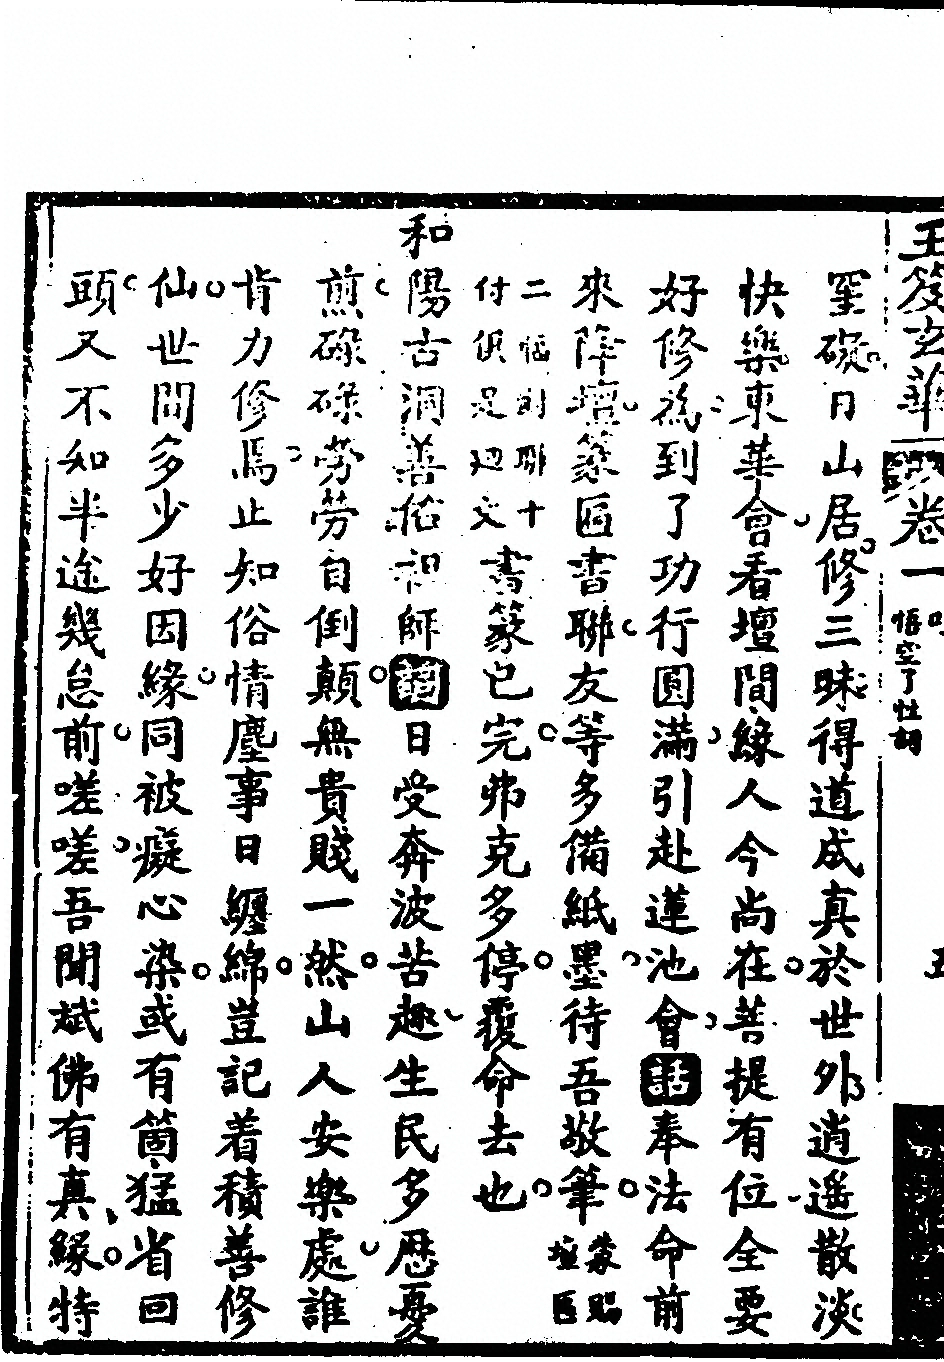 玉笈玄華 卷一 悟空了性詞 五
罣礙日山居修三昧得道成真於世外逍遙散淡
快樂東華會看壇間緣人今尚在菩提有位全要
好修為到了功行圓滿引赴蓮池會 話 奉法命前
來降壇篆匾書聯友等多備紙墨待吾敬筆 蒙賜壇匾
二幅對聯十付俱是迴文 書篆已完弗克多停覆命去也
和陽古洞善佑祖師 詞 日受奔波苦趣生民多歷憂
煎碌碌勞勞自倒顛無貴賤一然山人安樂處誰
肯力修焉止知俗情塵事日纏綿豈記着積善修
仙世間多少好因緣同被癡心染或有箇猛省回
頭又不知半途幾怠前嗟嗟吾聞斌佛有真緣特